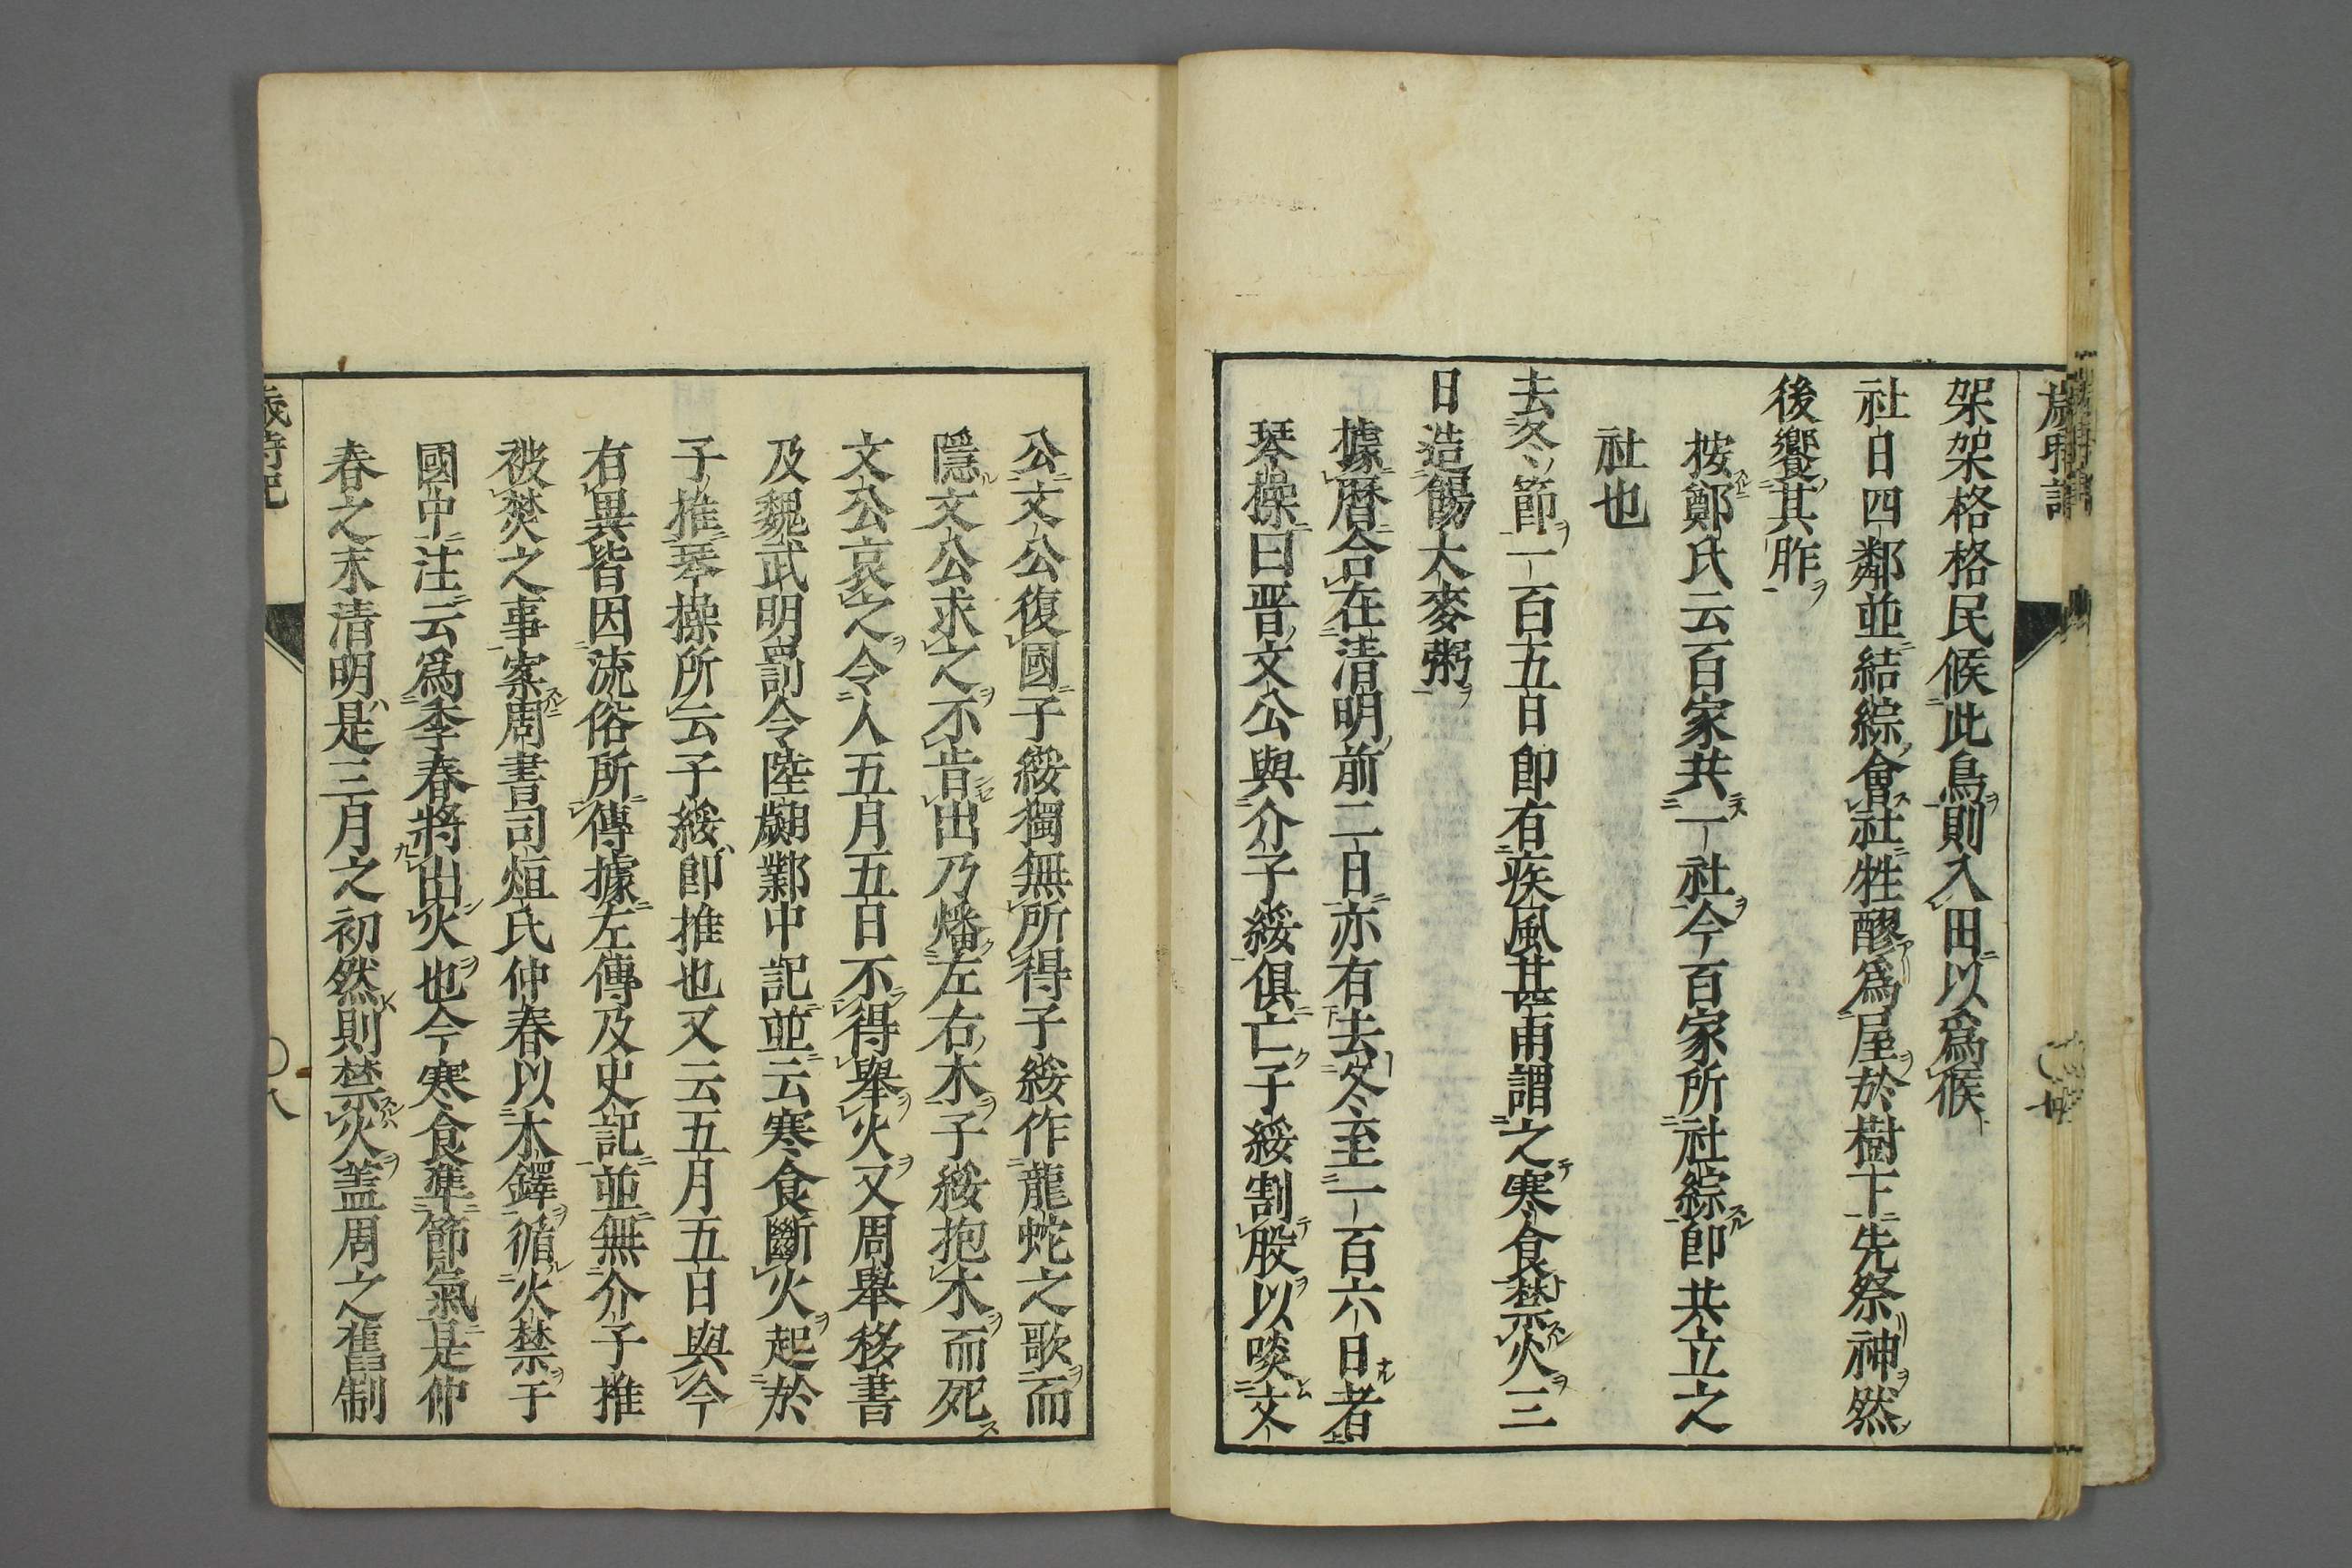 架架格格民候此鳥則入田以爲候
社日四鄰並結綜會社牲醪爲屋於樹下先祭神然
後饗其胙
按鄭氏云百家共一社今百家所社綜即共立之
社也
去冬節一百五日即有疾風甚雨謂之寒食禁火三
日造餳大麥粥
據曆合在清明前二日亦有去冬至一百六日者
琴操曰晋文公與介子綏俱亡子綏割股以啖文
公文公復國子綏獨無所得子綏作龍蛇之歌而
隱文公求之不肯出乃燔左右木子綏抱木而死
文公哀之令人五月五日不得舉火又周舉移書
及魏武明罰令陸翽鄴中記並云寒食斷火起於
子推琴操所云子綏即推也又云五月五日與今
有異皆因流俗所傳據左傳及史記並無介子推
被焚之事案周書司烜氏仲春以木鐸循火禁于
國中注云爲季春將出火也今寒食準節氣是仲
春之末清明是三月之初然則禁火蓋周之舊制
歲時記
八